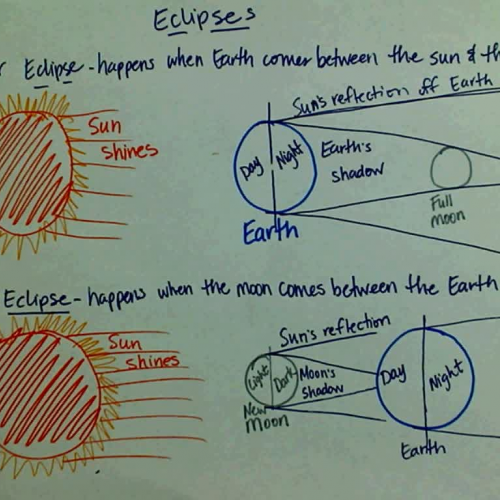 Eclipses
r Eclipse - happens when Earth comes between the sun & th
Sun's reflection off Earth
Sun
shines
Day
Night
Earth's
shadow
Full
moon
Earth
Eclipse - happens when the moon comes between the Earth
Sun's reflection
Sun
shines
Light
Dark
Moon's
Shadow
Day
Night
New
Moon
Earth